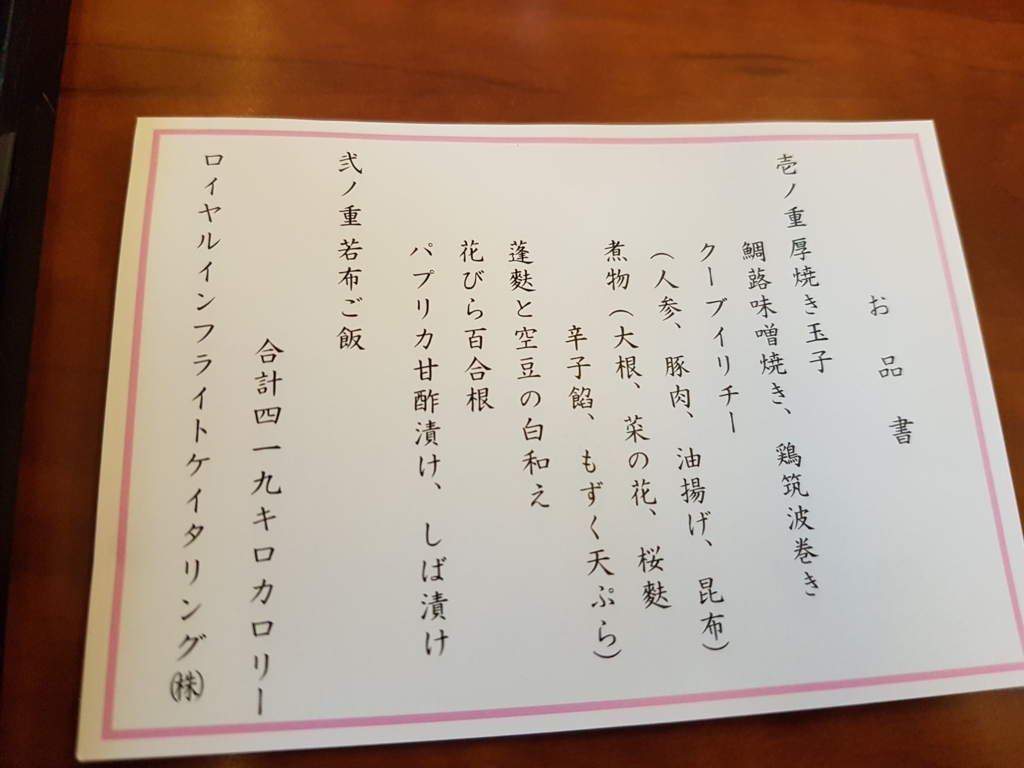 お品書
壱ノ重 厚焼き玉子
鯛蕗味噌焼き、鶏筑波巻き
クーブイリチー
（人参、豚肉、油揚げ、昆布）
煮物（大根、菜の花、桜麩
辛子餡、もずく天ぷら）
蓬麩と空豆の白和え
花びら百合根
パプリカ甘酢漬け、しば漬け
弐ノ重 若布ご飯
合計四一九キロカロリー
ロイヤルインフライトケイタリング㈱